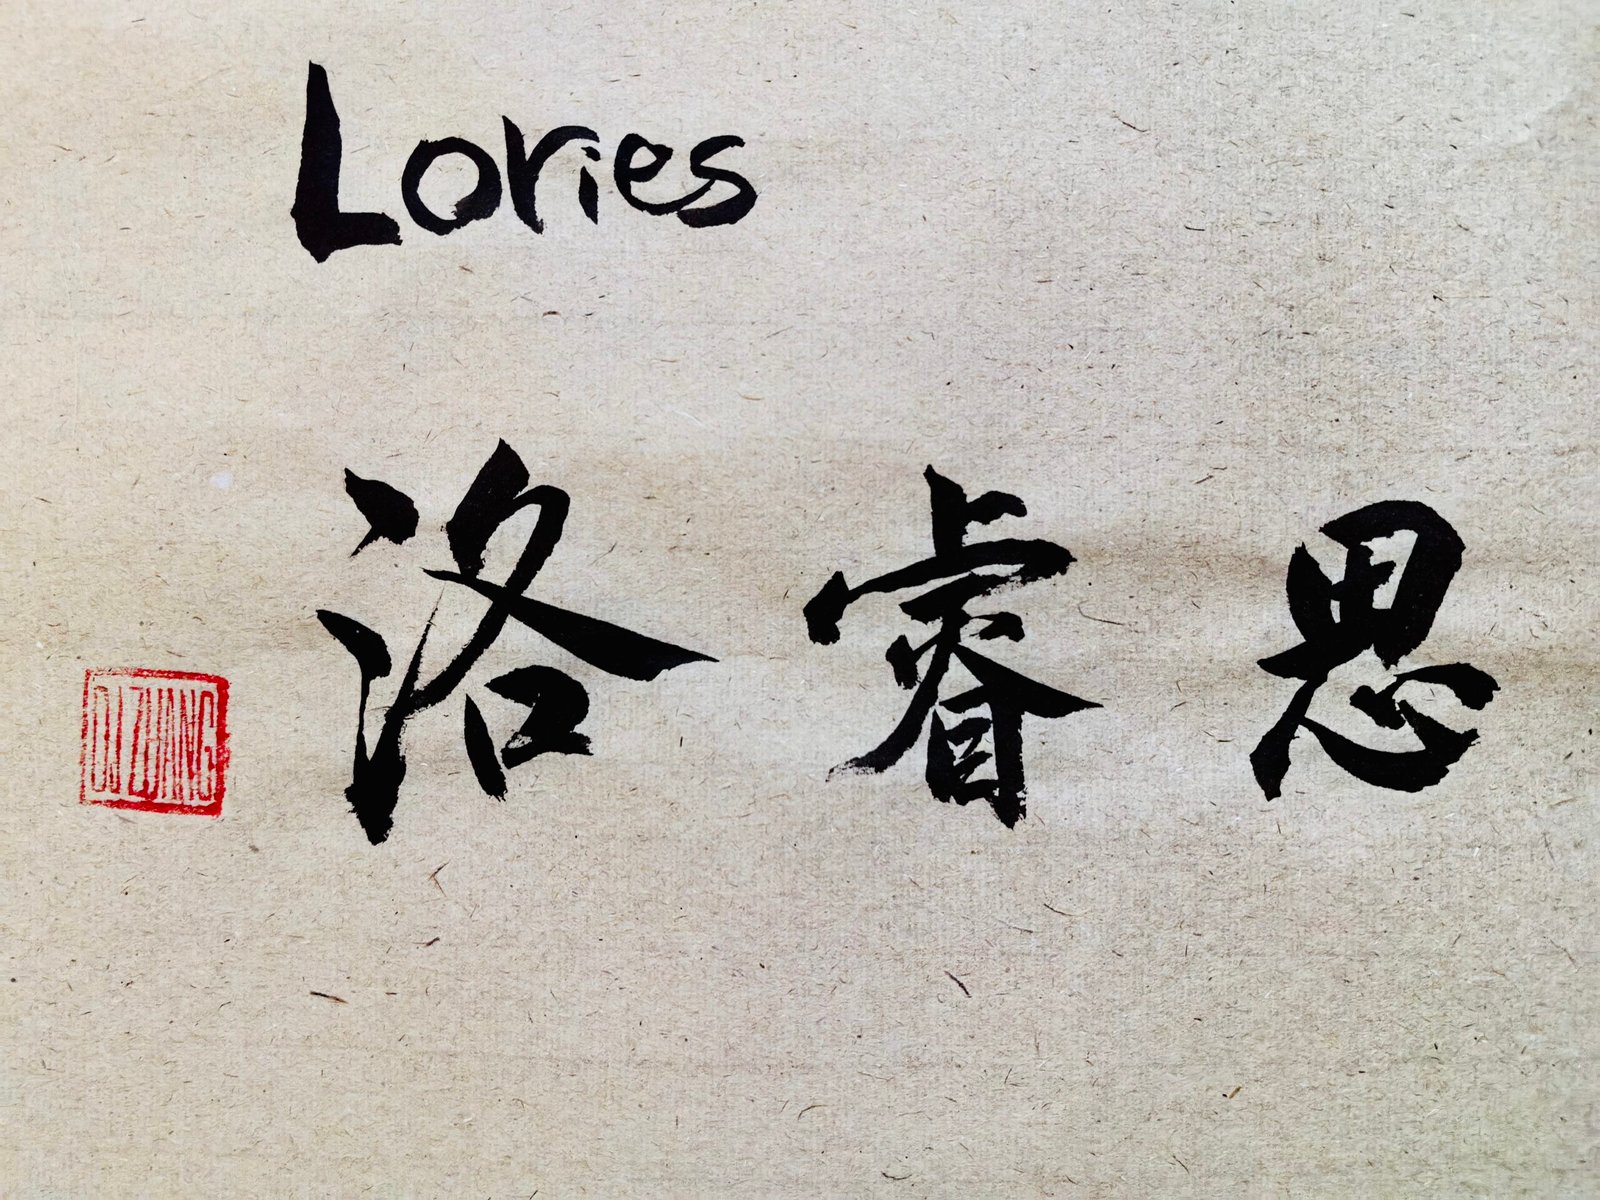 Lories
洛睿思
DJ ZHANG